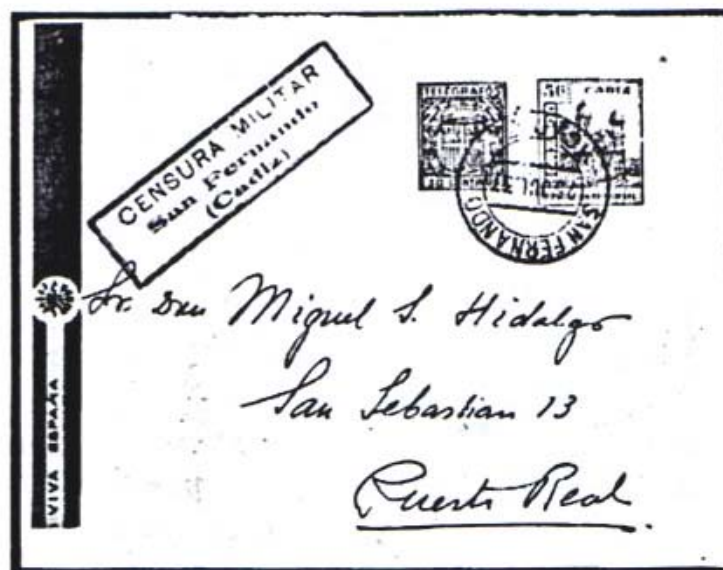 CENSURA MILITAR
San Fernando
(Cadiz)
TELEGRAFOS
CADIZ
SAN FERNANDO
JUL 37
Sr. Don Miguel S. Hidalgo
San Sebastian 13
Puerto Real
¡VIVA ESPAÑA